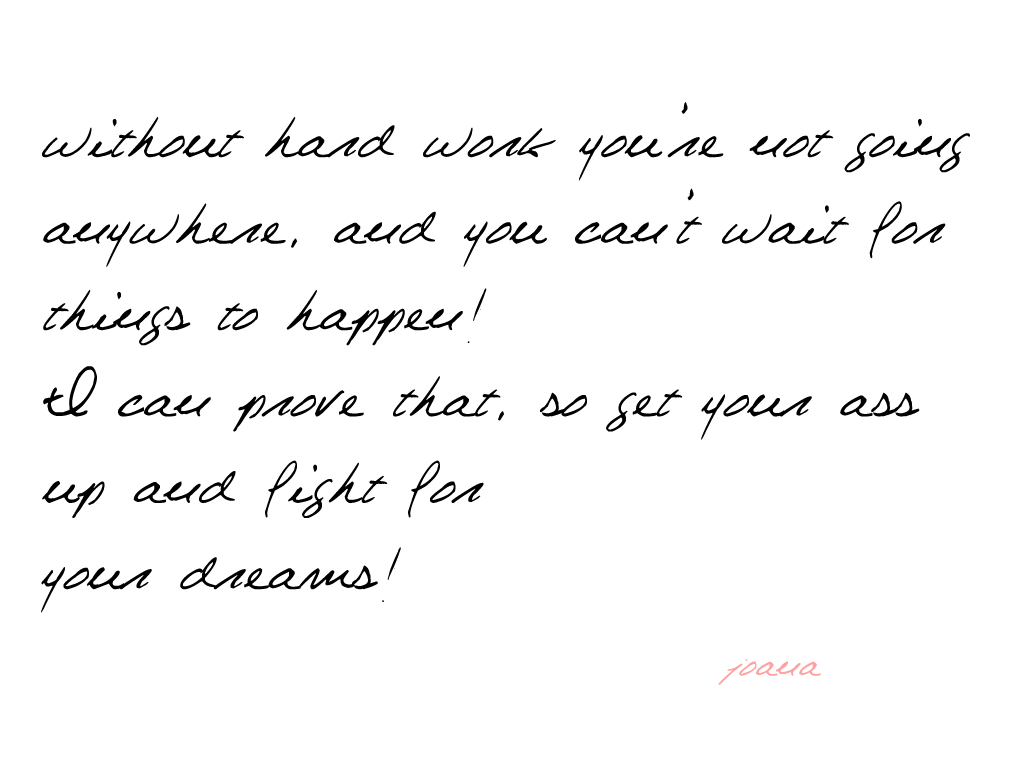 without hard work you're not going
anywhere, and you can't wait for
things to happen!
I can prove that, so get your ass
up and fight for
your dreams!
joana